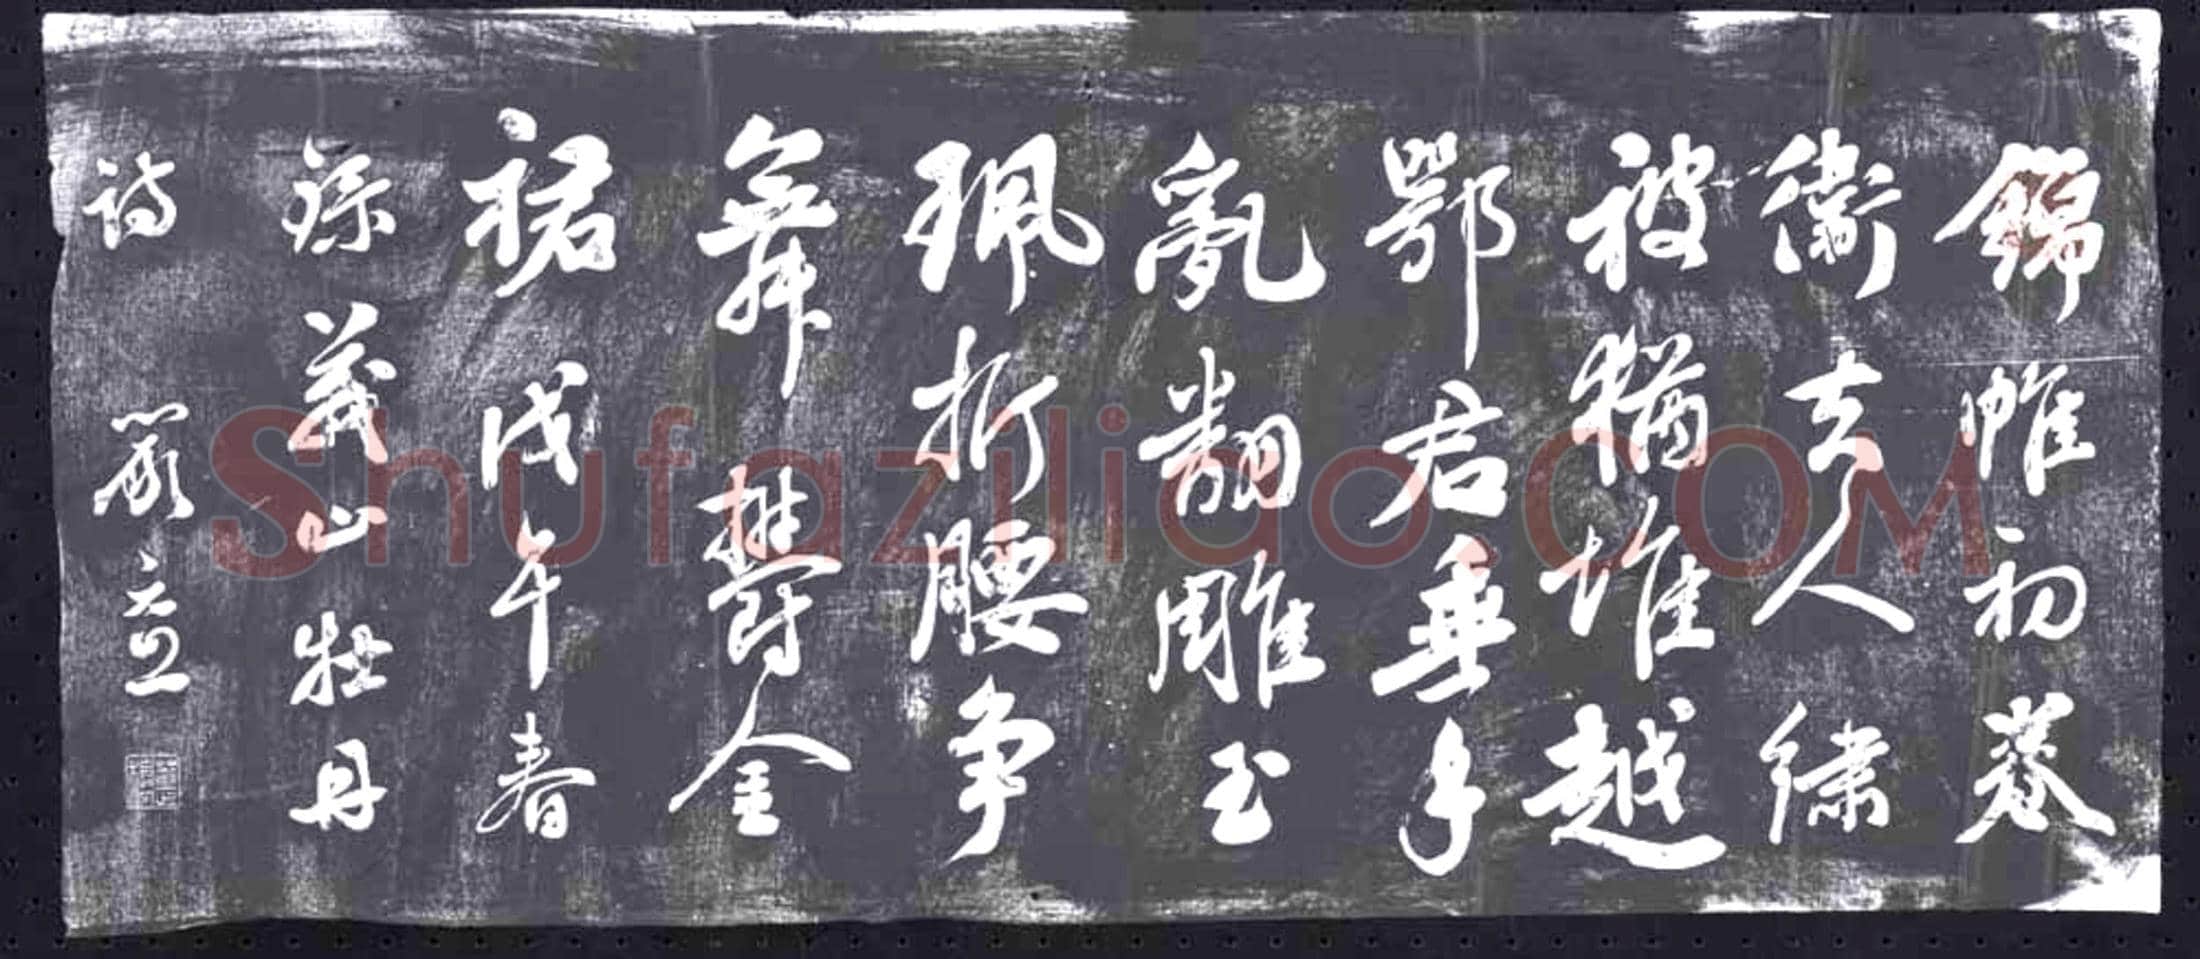 錦帷初卷
衛夫人繡
被猶堆越
鄂君垂手
亂翻雕玉
珮折腰爭
舞鬱金
裙戊午春
錄義山牡丹
詩 嚴
Shufaziliao.COM